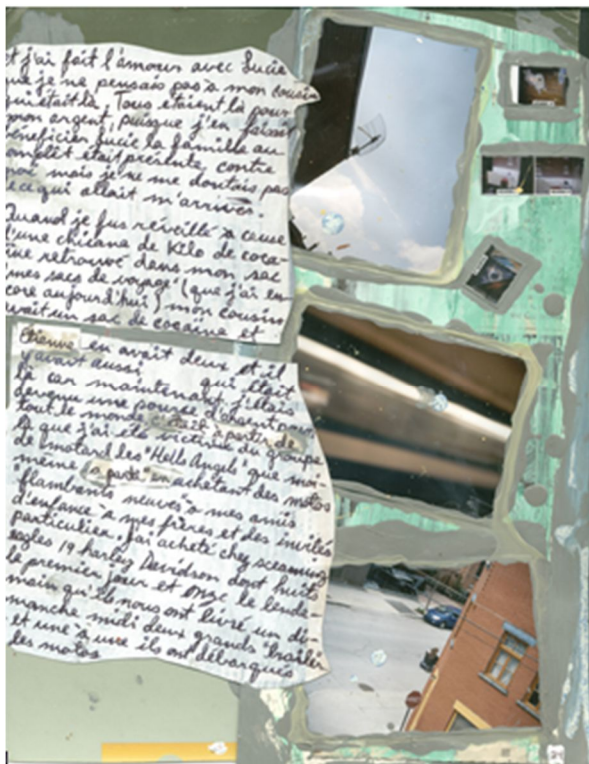 t j'ai fait l'amour avec Lucie
ue je ne pensais pas à mon cousin
qui était là. Tous étaient là pour
mon argent, puisque j'en faisait
bénéficier Lucie la famille au
omplet était présente, contre
moi mais je ne me doutais pas
de ce qui allait m'arriver.
Quand je fus réveillé à cause
d'une chicane de Kilo de coca-
ine retrouvé dans mon sac
mes sacs de voyage (que j'ai en-
core aujourd'hui) mon cousin
avait un sac de cocaine et
Étienne en avait deux et il
y avait aussi qui était
là car maintenant j'étais
devenu une pougne d'argent pour
tout le monde c'était à partir de
là que j'ai été victime du groupe
de motard les "Hells Angels" que moi-
même en achetant des motos
"flambants neuves" à mes amis
d'enfance à mes frères et des invités
particulier. J'ai acheté chez screaming
eagles 19 harley Davidson dont huits
le premier jour et onze le lende-
main qu'ils nous ont livré un di-
manche midi deux grands "trailer"
et une à une ils ont débarqués
les motos